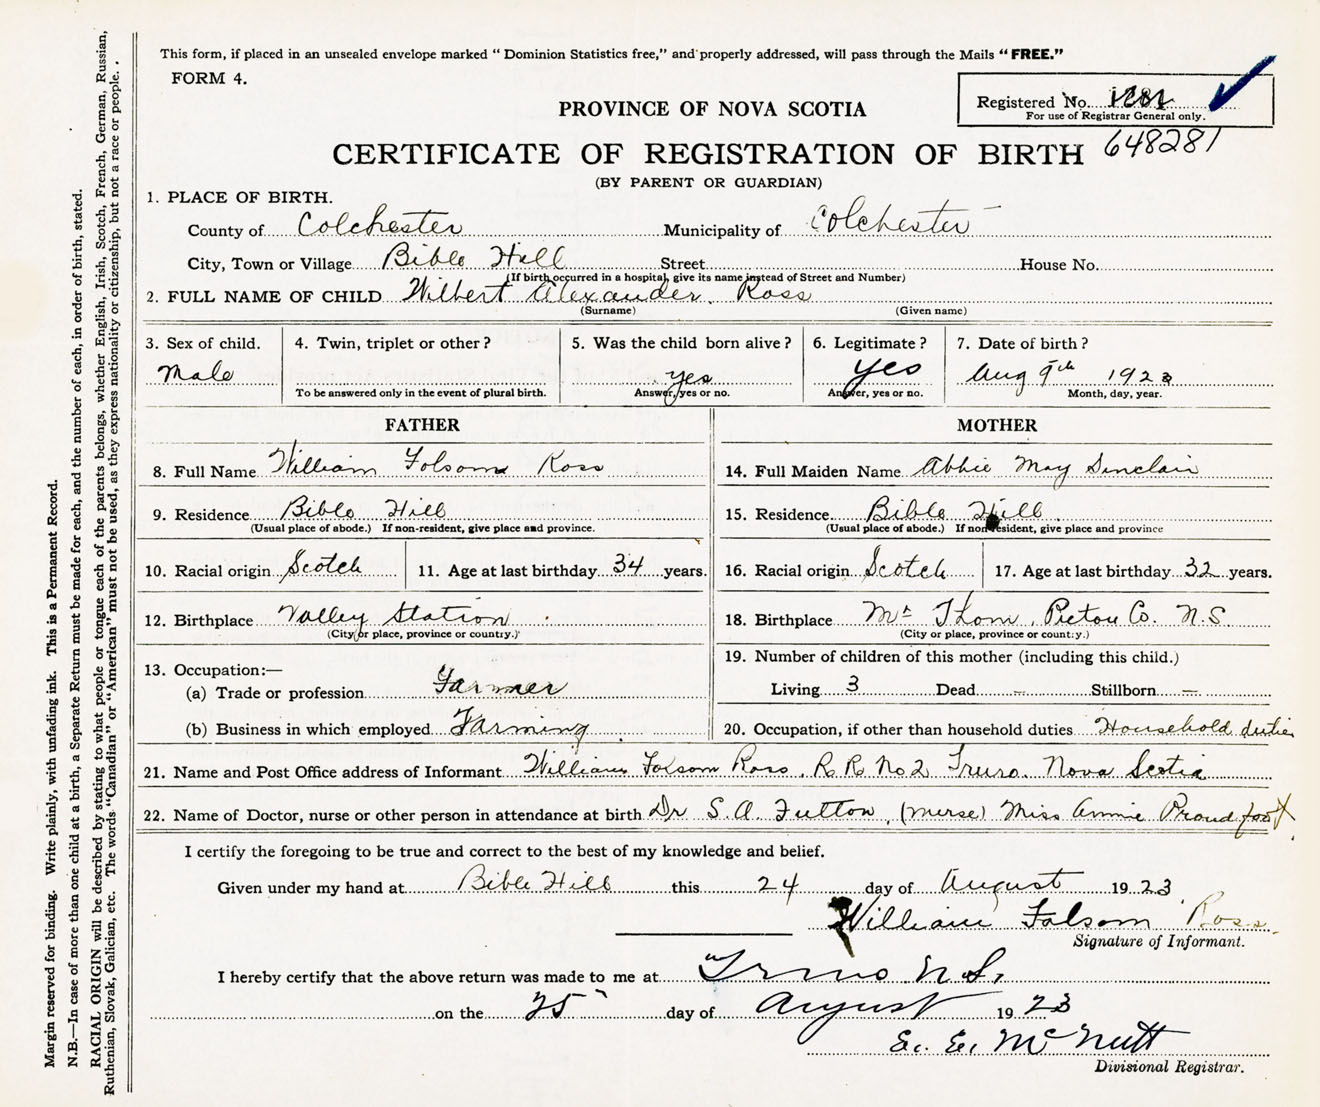 This form, if placed in an unsealed envelope marked "Dominion Statistics free," and properly addressed, will pass through the Mails "FREE."
FORM 4.
Registered No.
For use of Registrar General only.
648281
PROVINCE OF NOVA SCOTIA
CERTIFICATE OF REGISTRATION OF BIRTH
(BY PARENT OR GUARDIAN)
1. PLACE OF BIRTH.
County of Colchester Municipality of Colchester
City, Town or Village Bible Hill Street House No.
(If birth occurred in a hospital, give its name instead of Street and Number)
2. FULL NAME OF CHILD Wilbert Alexander Ross
(Surname) (Given name)
3. Sex of child. 4. Twin, triplet or other? 5. Was the child born alive? 6. Legitimate? 7. Date of birth?
Male yes Yes Aug 9th 1923
To be answered only in the event of plural birth. Answer, yes or no. Answer, yes or no. Month, day, year.
FATHER MOTHER
8. Full Name William Folsom Ross 14. Full Maiden Name Abbie May Sinclair
9. Residence Bible Hill 15. Residence Bible Hill
(Usual place of abode.) If non-resident, give place and province. (Usual place of abode.) If non-resident, give place and province
10. Racial origin Scotch 11. Age at last birthday 34 years. 16. Racial origin Scotch 17. Age at last birthday 32 years.
12. Birthplace Valley Station 18. Birthplace Mt Thom, Pictou Co. N.S.
(City or place, province or country.) (City or place, province or country.)
13. Occupation:— 19. Number of children of this mother (including this child.)
(a) Trade or profession Farmer Living 3 Dead – Stillborn –
(b) Business in which employed Farming 20. Occupation, if other than household duties Household duties
21. Name and Post Office address of Informant William Folsom Ross, R.R. No 2 Truro. Nova Scotia
22. Name of Doctor, nurse or other person in attendance at birth Dr S.A. Fulton, (nurse) Miss Annie Proudfoot
I certify the foregoing to be true and correct to the best of my knowledge and belief.
Given under my hand at Bible Hill this 24 day of August 1923
William Folsom Ross
Signature of Informant.
I hereby certify that the above return was made to me at Truro N.S.
on the 25 day of August 1923
E. E. McNutt
Divisional Registrar.
Margin reserved for binding. Write plainly, with unfading ink. This is a Permanent Record.
N.B.—In case of more than one child at a birth, a Separate Return must be made for each, and the number of each, in order of birth, stated.
RACIAL ORIGIN will be described by stating to what people or tongue each of the parents belongs, whether English, Irish, Scotch, French, German, Russian,
Ruthenian, Slovak, Galician, etc. The words "Canadian" or "American" must not be used, as they express nationality or citizenship, but not a race or people.